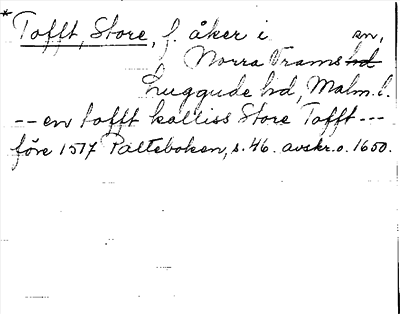 * Tofft, Store, f. åker i sn,
Norra Vrams hd
Luggude hd, Malm. l.
-- en tofft kalliss Store Tofft ---
före 1517 Palteboken, s. 46. avskr. o. 1600.